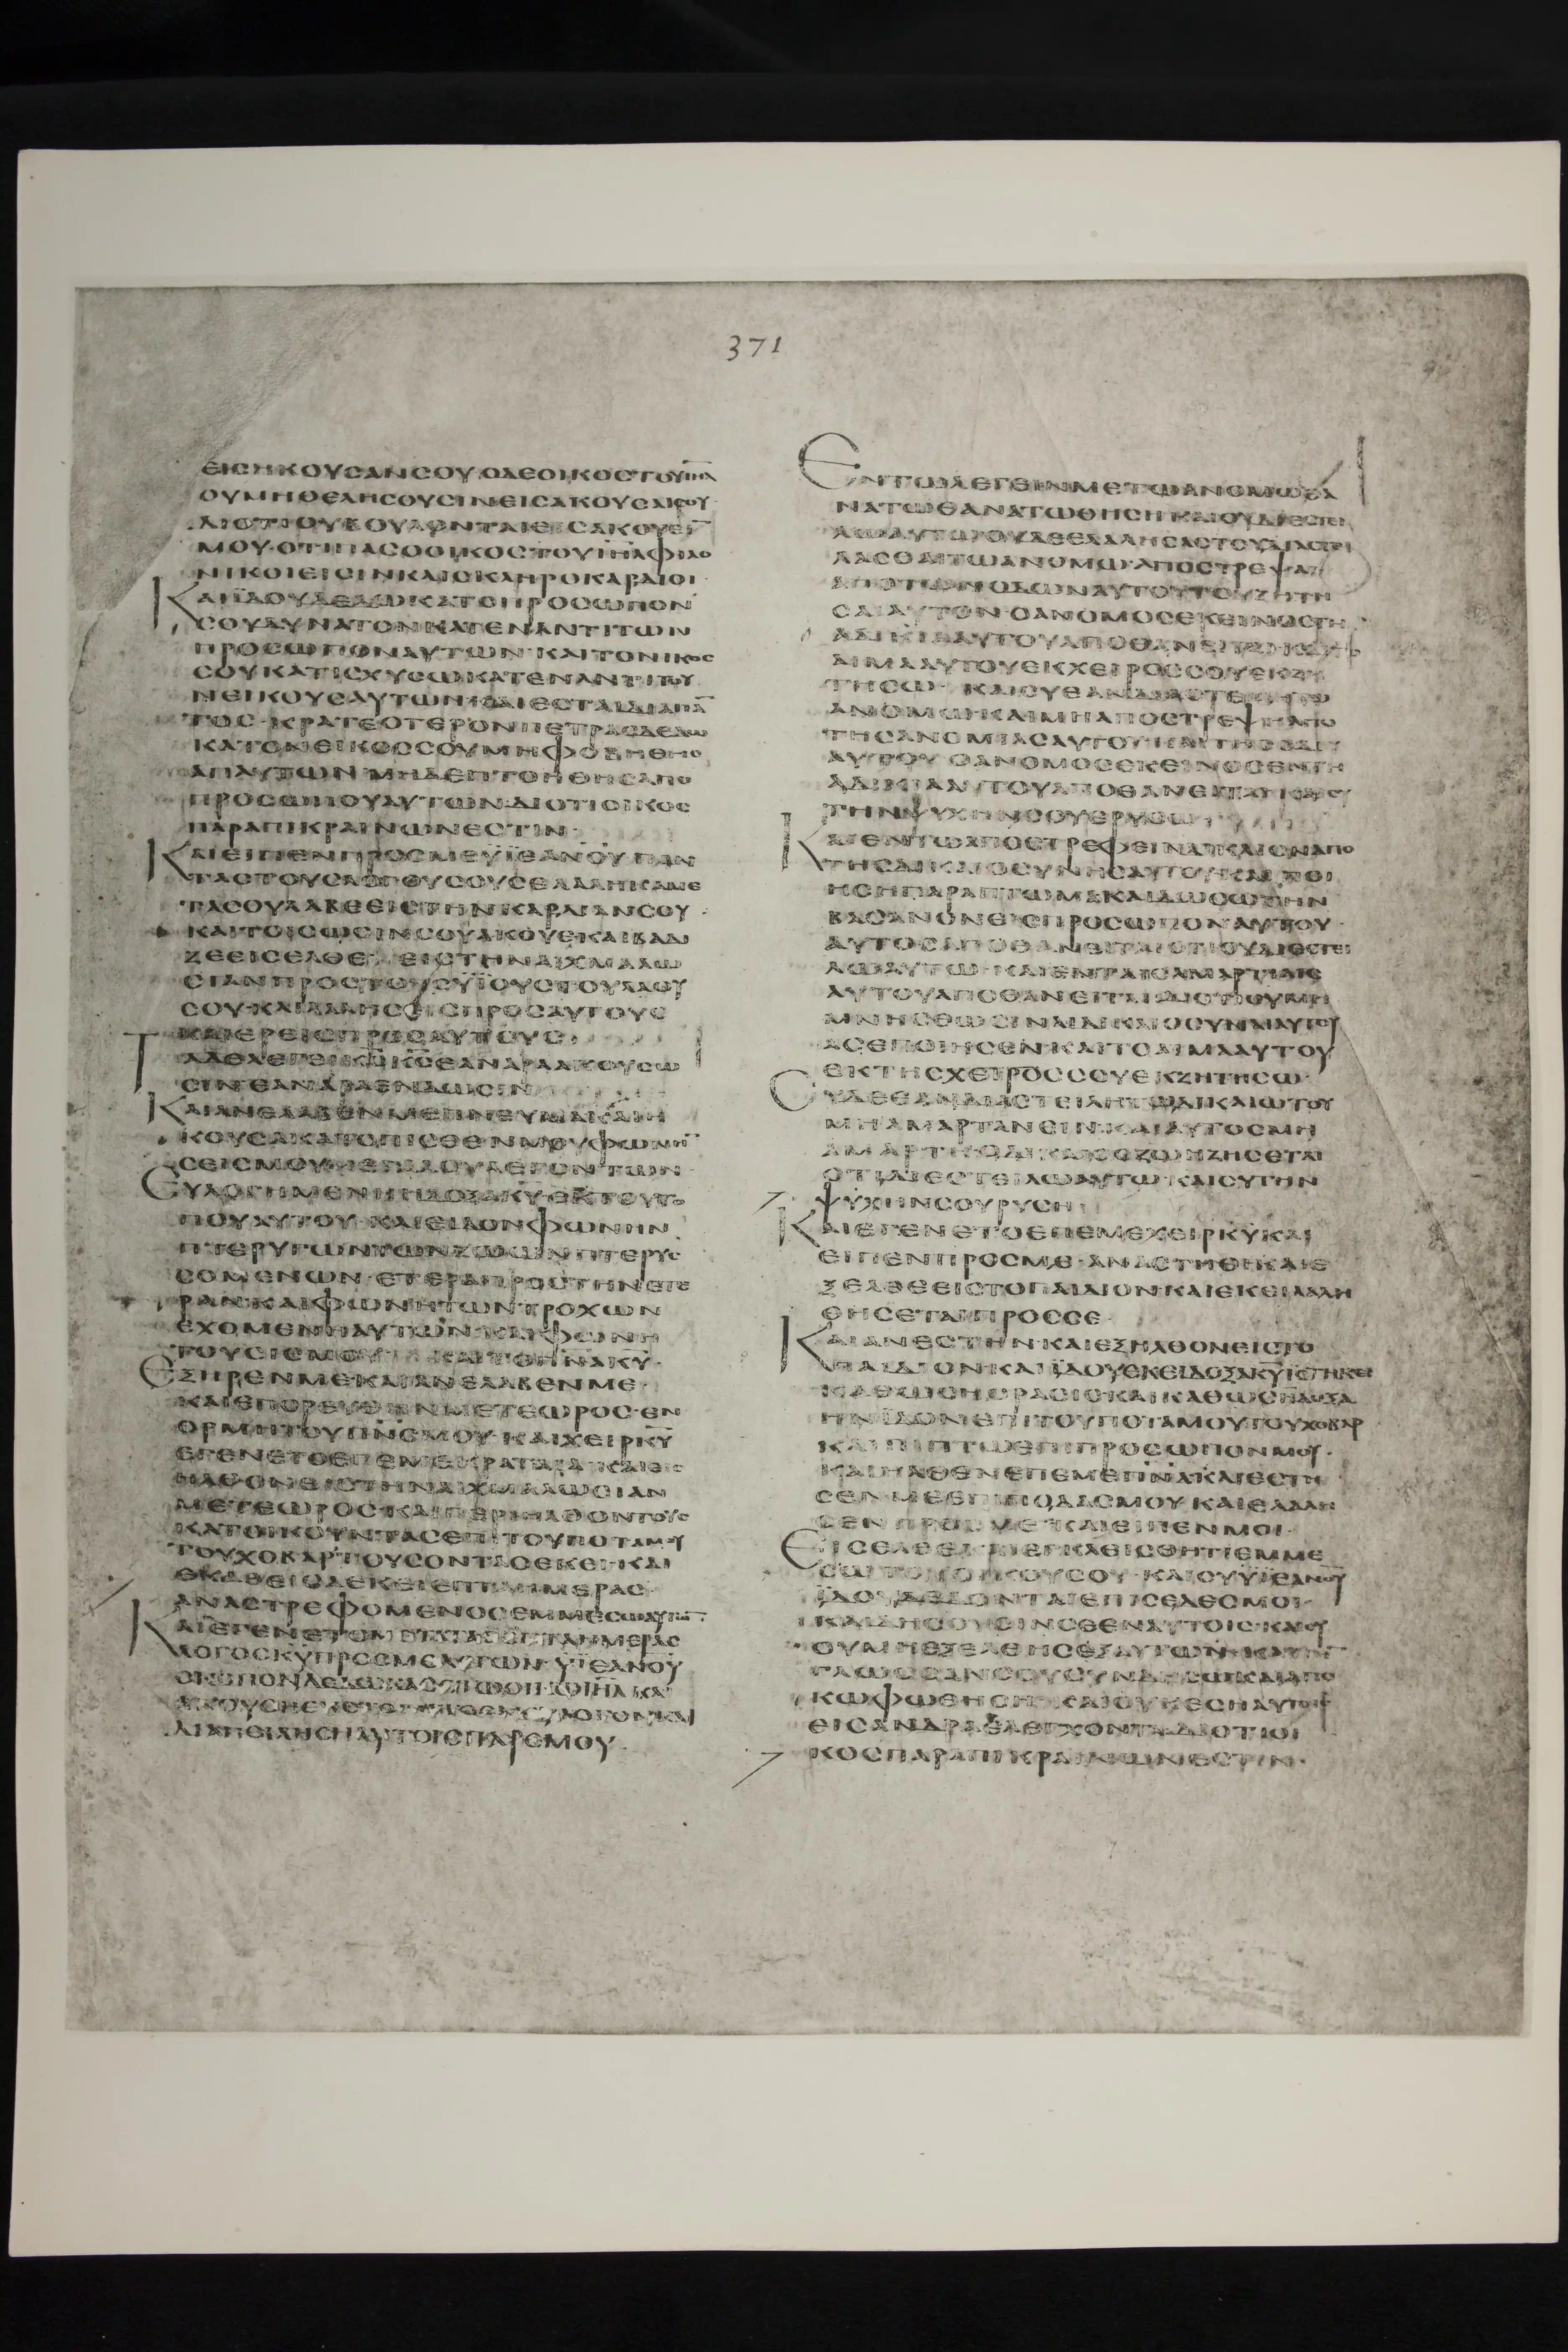 371
ΕΙCΗΚΟΥCΑΝCΟΥ·ΟΔΕΟΙΚΟCΤΟΥΙΗΛ
ΟΥΜΗΘΕΛΗCΟΥCΙΝΕΙCΑΚΟΥCΑΙCΟΥ
ΔΙΟΤΙΟΥΒΟΥΛΟΝΤΑΙΕΙCΑΚΟΥΕΙΝ
ΜΟΥ·ΟΤΙΠΑCΟΟΙΚΟCΤΟΥΙΗΛΦΙΛΟ
ΝΙΚΟΙΕΙCΙΝΚΑΙCΚΛΗΡΟΚΑΡΔΙΟΙ·
ΚΑΙΪΔΟΥΔΕΔΩΚΑΤΟΠΡΟCΩΠΟΝ
CΟΥΔΥΝΑΤΟΝΚΑΤΕΝΑΝΤΙΤΩΝ
ΠΡΟCΩΠΩΝΑΥΤΩΝ·ΚΑΙΤΟΝΙΚΟC
CΟΥΚΑΤΙCΧΥCΩΚΑΤΕΝΑΝΤΙΤΟΥ
ΝΕΙΚΟΥCΑΥΤΩΝ·ΚΑΙΕCΤΑΙΔΙΑΠΑ
ΤΟC·ΚΡΑΤΕΟΤΕΡΟΝΠΕΤΡΑCΔΕΔΩ
ΚΑΤΟΝΕΙΚΟCCΟΥΜΗΦΟΒΗΘΗC
ΑΠΑΥΤΩΝ·ΜΗΔΕΠΤΟΗΘΗCΑΠΟ
ΠΡΟCΩΠΟΥΑΥΤΩΝ·ΔΙΟΤΙΟΙΚΟC
ΠΑΡΑΠΙΚΡΑΙΝΩΝΕCΤΙΝ·
ΚΑΙΕΙΠΕΝΠΡΟCΜΕΥΪΕΑΝΟΥΠΑΝ
ΤΑCΤΟΥCΛΟΓΟΥCΟΥCΕΛΑΛΗΚΑΜΕ
ΤΑCΟΥΛΑΒΕΕΙCΤΗΝΚΑΡΔΙΑΝCΟΥ·
ΚΑΙΤΟΙCΩCΙΝCΟΥΑΚΟΥΕΚΑΙΒΑΔΙ
ΖΕΕΙCΕΛΘΕ ΕΙCΤΗΝΑΙΧΜΑΛΩ
CΙΑΝΠΡΟCΤΟΥCΥΪΟΥCΤΟΥΛΑΟΥ
CΟΥ·ΚΑΙΛΑΛΗCΕΙCΠΡΟCΑΥΤΟΥC
ΚΑΙΕΡΕΙCΠΡΟCΑΥΤΟΥC
ΤΑΔΕΛΕΓΕΙΚCΚCΕΑΝΑΡΑΑΚΟΥCΩ
CΙΝΕΑΝΑΡΑΕΝΔΩCΙΝ
ΚΑΙΑΝΕΛΑΒΕΝΜΕΠΝΕΥΜΑΚΑΙΗ
ΚΟΥCΑΚΑΤΟΠΙCΘΕΝΜΟΥΦΩΝΗ
CΕΙCΜΟΥΜΕΓΑΛΟΥΛΕΓΟΝΤΩΝ
ΕΥΛΟΓΗΜΕΝΗΗΔΟΞΑΚΥΕΚΤΟΥΤΟ
ΠΟΥΑΥΤΟΥ·ΚΑΙΕΙΔΟΝΦΩΝΗΝ
ΠΤΕΡΥΓΩΝΤΩΝΖΩΩΝΠΤΕΡΥC
CΟΜΕΝΩΝ·ΕΤΕΡΑΠΡΟCΤΗΝΕΤΕ
ΡΑΝ·ΚΑΙΦΩΝΗΤΩΝΤΡΟΧΩΝ
ΕΧΟΜΕΝΗΑΥΤΩΝ·ΚΑΙΦΩΝΗ
ΤΟΥCΙCΜΟΥ ΚΑΙΤΟΠΝΑΚΥ·
ΕΞΗΡΕΝΜΕΚΑΙΑΝΕΛΑΒΕΝΜΕ·
ΚΑΙΕΠΟΡΕΥΘΗΝΜΕΤΕΩΡΟC·ΕΝ
ΟΡΜΗΤΟΥΠΝCΜΟΥ·ΚΑΙΧΕΙΡΚΥ
ΕΓΕΝΕΤΟΕΠΕΜΕΚΡΑΤΑΙΑ·ΚΑΙΕΙC
ΗΛΘΟΝΕΙCΤΗΝΑΙΧΜΑΛΩCΙΑΝ
ΜΕΤΕΩΡΟC·ΚΑΙΠΕΡΙΗΛΘΟΝΤΟΥC
ΚΑΤΟΙΚΟΥΝΤΑCΕΠΙΤΟΥΠΟΤΑΜΟΥ
ΤΟΥΧΟΒΑΡΤΟΥCΟΝΤΑCΕΚΕΙ·ΚΑΙ
ΕΚΑΘΕΙCΑΕΚΕΙΕΠΤΑΗΜΕΡΑC·
ΑΝΑCΤΡΕΦΟΜΕΝΟCΕΜΜΕCΩΑΥΤΩΝ
ΚΑΙΕΓΕΝΕΤΟΜΕΤΑΤΑCΕΠΤΑΗΜΕΡΑC
ΛΟΓΟCΚΥΠΡΟCΜΕΛΕΓΩΝ·ΥΪΕΑΝΟΥ
CΚΟΠΟΝΔΕΔΩΚΑCΕΤΩΟΙΚΩΙΗΛΚΑΙ
ΔΙΑΠΕΙΛΗCΗΑΥΤΟΙCΠΑΡΕΜΟΥ·
ΕΝΤΩΛΕΓΕΙΝΜΕΤΩΑΝΟΜΩΘΑ
ΝΑΤΩΘΑΝΑΤΩΘΗCΗΚΑΙΟΥΔΙΕCΤΕΙ
ΛΩΑΥΤΩ·ΟΥΔΕΕΛΑΛΗCΑCΤΟΥΔΙΑCΤΕΙ
ΛΑCΘΑΙΤΩΑΝΟΜΩ·ΑΠΟCΤΡΕΨΑΙ
ΑΠΟΤΩΝΟΔΩΝΑΥΤΟΥΤΟΥΖΗΤΗ
CΑΙΑΥΤΟΝ·ΟΑΝΟΜΟCΕΚΕΙΝΟCΤΗ
ΑΔΙΚΙΑΑΥΤΟΥΑΠΟΘΑΝΕΙΤΑΙΚΑΙΤΟ
ΑΙΜΑΑΥΤΟΥΕΚΧΕΙΡΟCCΟΥΕΚΖΗ
ΤΗCΩ· ΚΑΙCΥΕΑΝΔΙΑCΤΕΙΛΗΤΩ
ΑΝΟΜΩΚΑΙΜΗΑΠΟCΤΡΕΨΗΑΠΟ
ΤΗCΑΝΟΜΙΑCΑΥΤΟΥ·ΚΑΙΤΗCΟΔΟΥ
ΑΥΤΟΥ·ΟΑΝΟΜΟCΕΚΕΙΝΟCΕΝΤΗ
ΑΔΙΚΙΑΑΥΤΟΥΑΠΟΘΑΝΕΙΤΑΙ·ΚΑΙCΥ
ΤΗΝΨΥΧΗΝCΟΥΕΡΥCΩ
ΚΑΙΕΝΤΩΑΠΟCΤΡΕΦΕΙΝΔΙΚΑΙΟΝΑΠΟ
ΤΗCΔΙΚΑΙΟCΥΝΗCΑΥΤΟΥ·ΚΑΙΠΟΙ
ΗCΗΠΑΡΑΠΤΩΜΑΚΑΙΔΩCΩΤΗΝ
ΒΑCΑΝΟΝΕΙCΠΡΟCΩΠΟΝΑΥΤΟΥ·
ΑΥΤΟCΑΠΟΘΑΝΕΙΤΑΙΟΤΙΟΥΔΙΕCΤΕΙ
ΛΩΑΥΤΩ·ΚΑΙΕΝΤΑΙCΑΜΑΡΤΙΑΙC
ΑΥΤΟΥΑΠΟΘΑΝΕΙΤΑΙΔΙΟΤΙΟΥΜΗ
ΜΝΗCΘΩCΙΝΑΙΔΙΚΑΙΟCΥΝΑΙΑΥΤΟΥ
ΑCΕΠΟΙΗCΕΝ·ΚΑΙΤΟΑΙΜΑΑΥΤΟΥ
ΕΚΤΗCΧΕΙΡΟCCΟΥΕΚΖΗΤΗCΩ·
CΥΔΕΕΑΝΔΙΑCΤΕΙΛΗΤΩΔΙΚΑΙΩΤΟΥ
ΜΗΑΜΑΡΤΑΝΕΙΝ·ΚΑΙΑΥΤΟCΜΗ
ΑΜΑΡΤΗΟΔΙΚΑΙΟCΖΩΗΖΗCΕΤΑΙ
ΟΤΙΔΙΕCΤΕΙΛΩΑΥΤΩ·ΚΑΙCΥΤΗΝ
ΨΥΧΗΝCΟΥΡΥCΗ·
ΚΑΙΕΓΕΝΕΤΟΕΠΕΜΕΧΕΙΡΚΥΚΑΙ
ΕΙΠΕΝΠΡΟCΜΕ·ΑΝΑCΤΗΘΙΚΑΙΕ
ΞΕΛΘΕΕΙCΤΟΠΑΙΔΙΟΝ·ΚΑΙΕΚΕΙΛΑΛΗ
ΘΗCΕΤΑΙΠΡΟCCΕ·
ΚΑΙΑΝΕCΤΗΝ·ΚΑΙΕΞΗΛΘΟΝΕΙCΤΟ
ΠΑΙΔΙΟΝ·ΚΑΙΪΔΟΥΕΚΕΙΔΟΞΑΚΥΪCΤΗΚΕΙ
ΚΑΘΩCΗΟΡΑCΙCΚΑΙΚΑΘΩCΗΔΟΞΑ
ΗΝΪΔΟΝΕΠΙΤΟΥΠΟΤΑΜΟΥΤΟΥΧΟΒΑΡ
ΚΑΙΠΙΠΤΩΕΠΙΠΡΟCΩΠΟΝΜΟΥ·
ΚΑΙΗΛΘΕΝΕΠΕΜΕΠΝΑΚΑΙΕCΤΗ
CΕΝΜΕΕΠΙΠΟΔΑCΜΟΥ·ΚΑΙΕΛΑΛΗ
CΕΝΠΡΟCΜΕΚΑΙΕΙΠΕΝΜΟΙ·
ΕΙCΕΛΘΕΚΑΙΕΓΚΛΕΙCΘΗΤΙΕΜΜΕ
CΩΤΟΥΟΙΚΟΥCΟΥ·ΚΑΙCΥΥΪΕΑΝΟΥ
ΪΔΟΥΔΕΔΟΝΤΑΙΕΠΙCΕΔΕCΜΟΙ·
ΚΑΙΔΗCΟΥCΙΝCΕΕΝΑΥΤΟΙC·ΚΑΙΟΥ
ΟΥΜΗΕΞΕΛΘΗCΕΞΑΥΤΩΝ·ΚΑΙΤΗΝ
ΓΛΩCCΑΝCΟΥCΥΝΔΗCΩΚΑΙΑΠΟ
ΚΩΦΩΘΗCΗ·ΚΑΙΟΥΚΕCΗΑΥΤΟΙC
ΕΙCΑΝΔΡΑΕΛΕΓΧΟΝΤΑ·ΔΙΟΤΙΟΙ
ΚΟCΠΑΡΑΠΙΚΡΑΙΝΩΝΕCΤΙΝ·